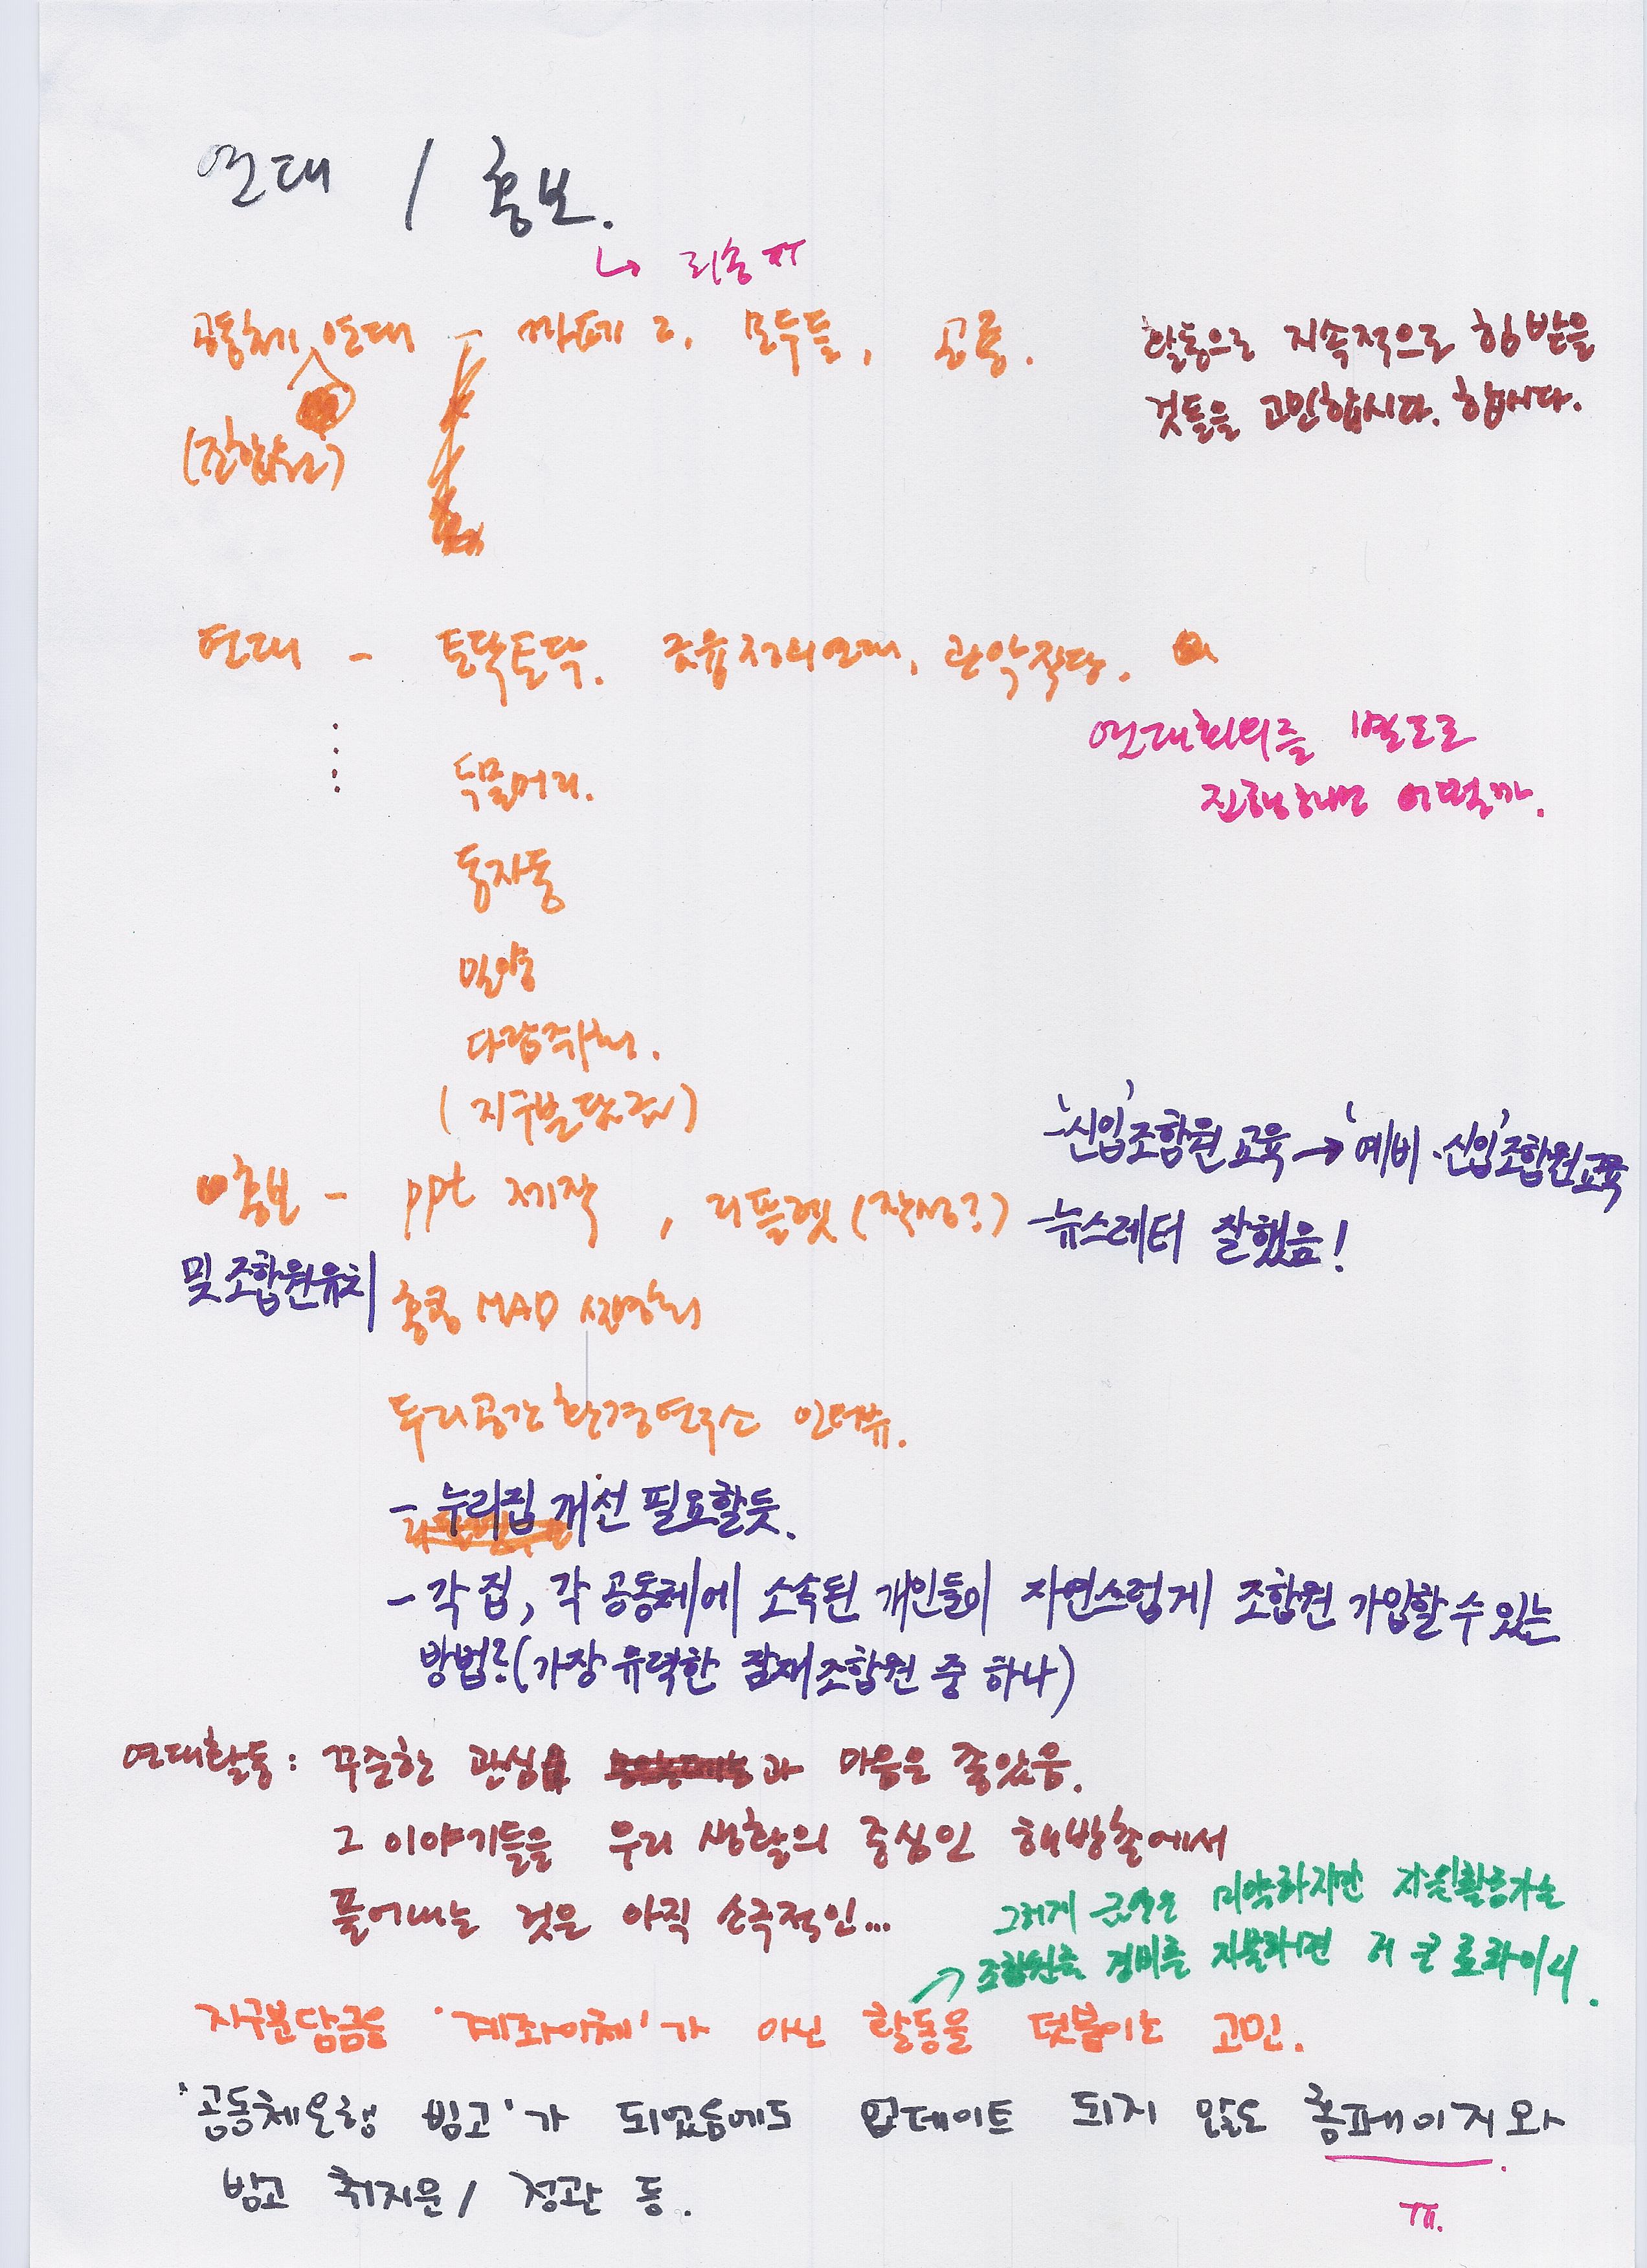 연대 / 홍보.
↳ 죄송ㅠ
공동체 연대 - 까페 그, 모두들, 공룡.
(진행위원)
활동으로 지속적으로 힘 받을
것들을 고민합시다. 합시다.
연대 - 토닥토닥. 금융정의연대, 관악직당.
두물머리.
연대회의를 별도로
진행해보면 어떨까.
동자동
밀양
다람쥐회.
(지구분담금)
홍보 - ppt 제작, 리플렛 (작성?)
및 조합원유치
- '신입'조합원 교육 → '예비·신입'조합원교육
- 뉴스레터 잘했음!
홍콩 MAD
두리공간환경연구소 인터뷰.
- 누리집 개선 필요할듯.
- 각 집, 각 공동체에 소속된 개인들이 자연스럽게 조합원 가입할 수 있는
방법?(가장 유력한 잠재조합원 중 하나)
연대활동 : 꾸준한 관심과 마음은 좋았음.
그 이야기들을 우리 생활의 중심인 해방촌에서
풀어내는 것은 아직 소극적인...
그러게 금액은 미약하지만 지원활동가는
↗ 조합원들 경비를 지불하면 더 큰
지구분담금을 '계좌이체'가 아닌 활동을 덧붙이는 고민.
'공동체은행 빈고'가 되었음에도 업데이트 되지 않는 홈페이지와
빈고 취지문 / 정관 등.
ㅠㅠ.